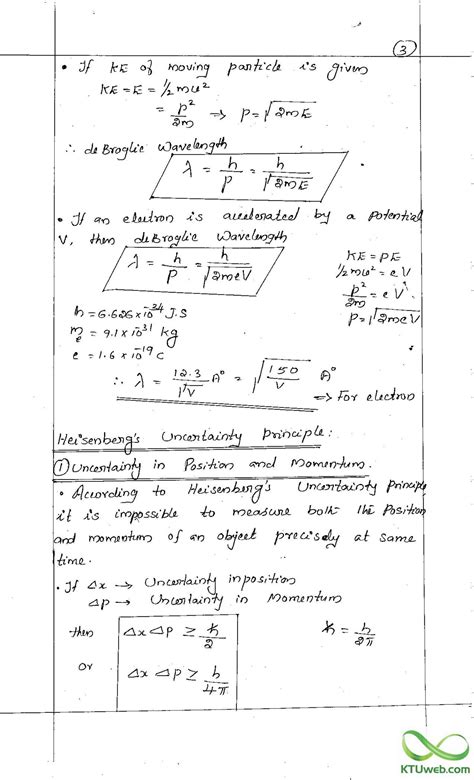 3
• If KE of moving particle is given
KE = E = 1/2 mu²
= p²/2m ⇒ p = √2mE
∴ de Broglie Wavelength
λ = h/p = h/√2mE
• If an electron is accelerated by a Potential
V, then deBroglie Wavelength
λ = h/p = h/√2meV
KE = PE
1/2 mu² = eV
p²/2m = eV
p = √2meV
h = 6.626 × 10⁻³⁴ J.S
me = 9.1 × 10⁻³¹ kg
e = 1.6 × 10⁻¹⁹ C
∴ λ = 12.3/√V A° = √150/V A°
⇒ For electron
Heisenberg's Uncertainty Principle:
① Uncertainty in Position and Momentum.
• According to Heisenberg's Uncertainty Principle
it is impossible to measure both the Position
and momentum of an object precisely at same
time.
• If Δx → Uncertainty in position
Δp → Uncertainty in Momentum
then Δx Δp ≥ ħ/2 ħ = h/2π
or Δx Δp ≥ h/4π
KTUweb.com